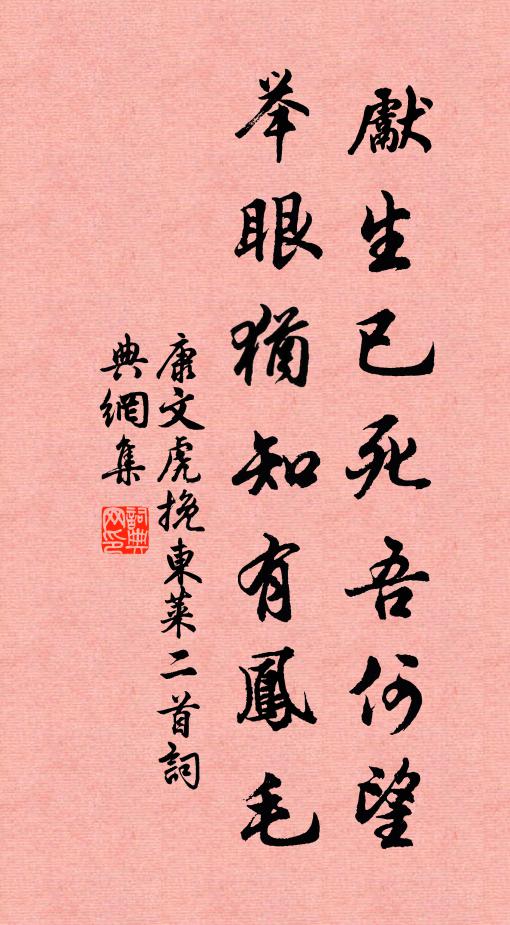 獻生已死吾何望
举眼猶知有鳳毛
康文虎挽東萊二首詞
典網集
詞典網印